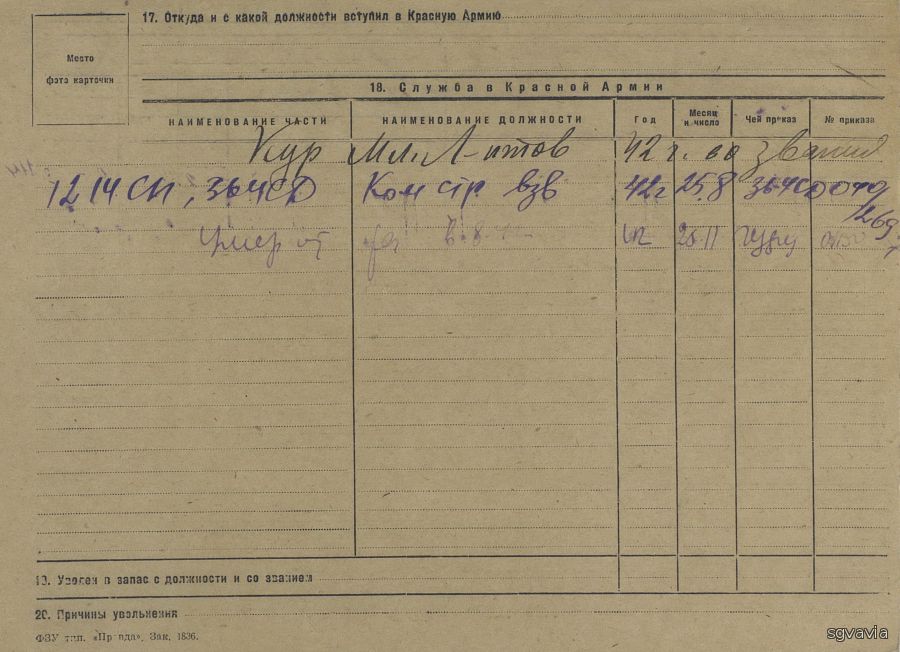 17. Откуда и с какой должности вступил в Красную Армию
Место
фото карточки
18. Служба в Красной Армии
НАИМЕНОВАНИЕ ЧАСТИ НАИМЕНОВАНИЕ ДОЛЖНОСТИ Год Месяц и число Чей приказ № приказа
Кур Мл. Л-нтов 42 г. звания
1214 СП, 364 СД Ком стр взв 42 г 25.8 364 СД 040
1269
Умер от 42 11 ГУФУ
19. Уволен в запас с должности и со званием
20. Причины увольнения
ФЗУ тип. «Правда», Зак. 1836.
sgvavia